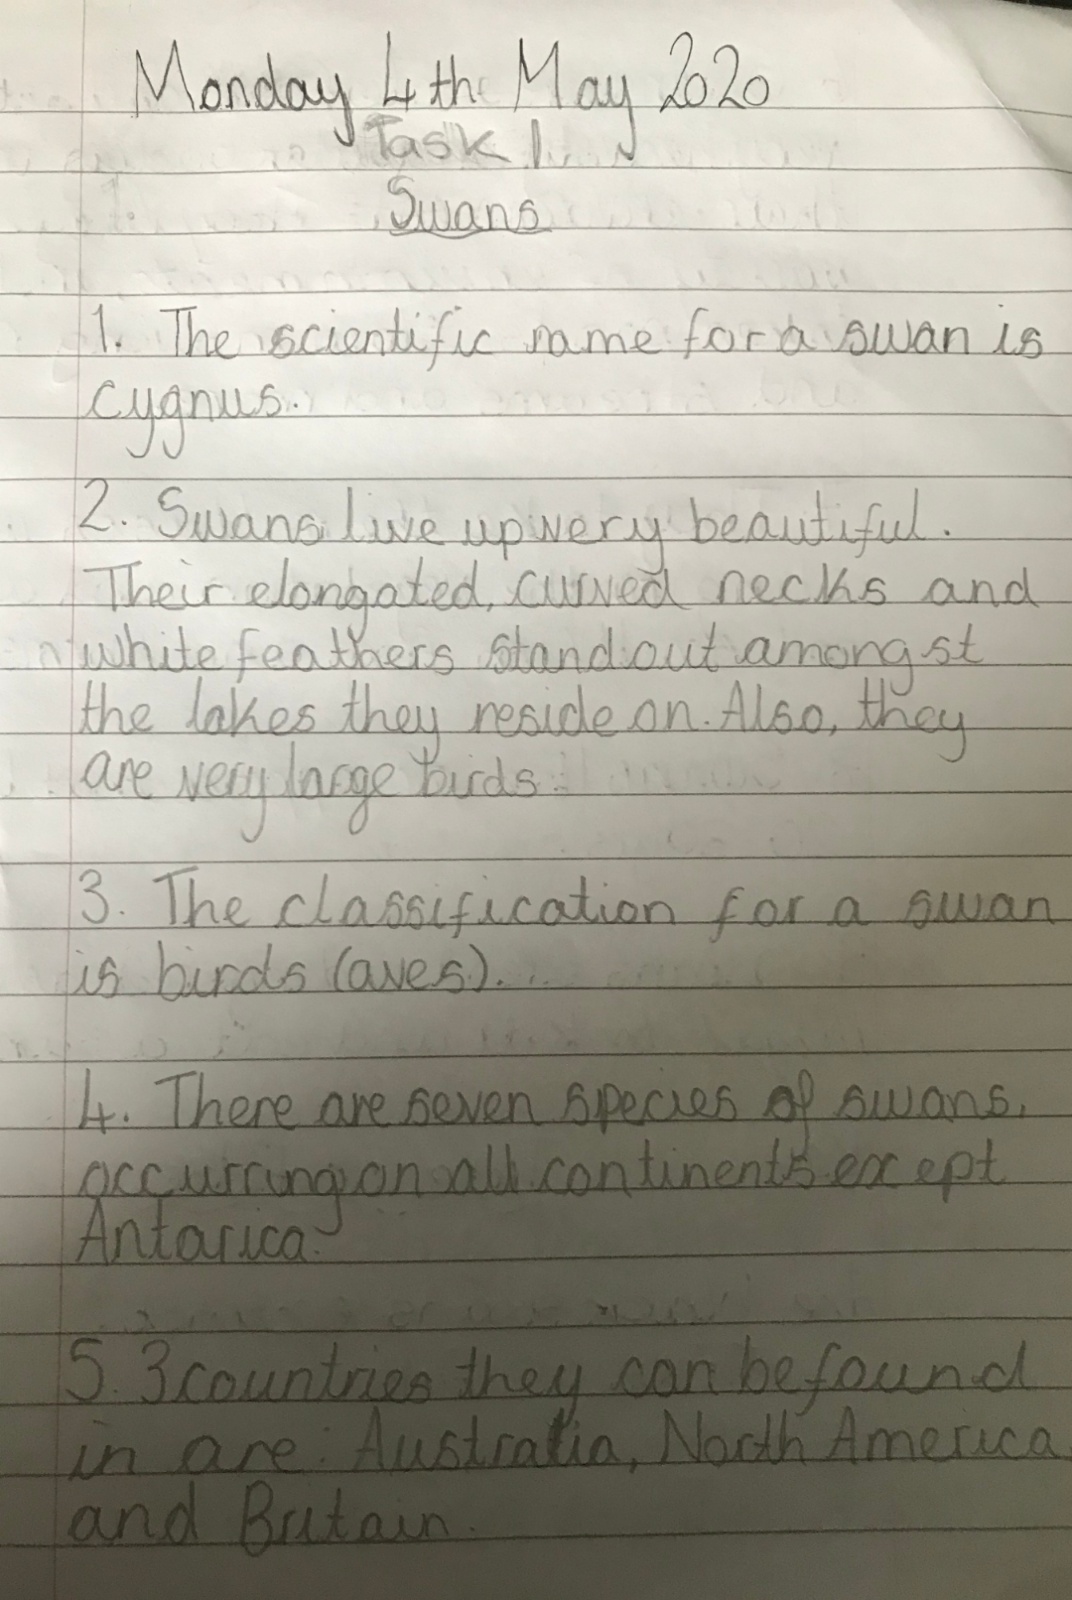 Monday 4th May 2020
Task 1
Swans
1. The scientific name for a swan is
cygnus.
2. Swans live up very beautiful.
Their elongated, curved necks and
white feathers stand out amongst
the lakes they reside on. Also, they
are very large birds.
3. The classification for a swan
is birds (aves).
4. There are seven species of swans,
occurring on all continents except
Antarica.
5. 3 countries they can be found
in are: Australia, North America
and Britain.